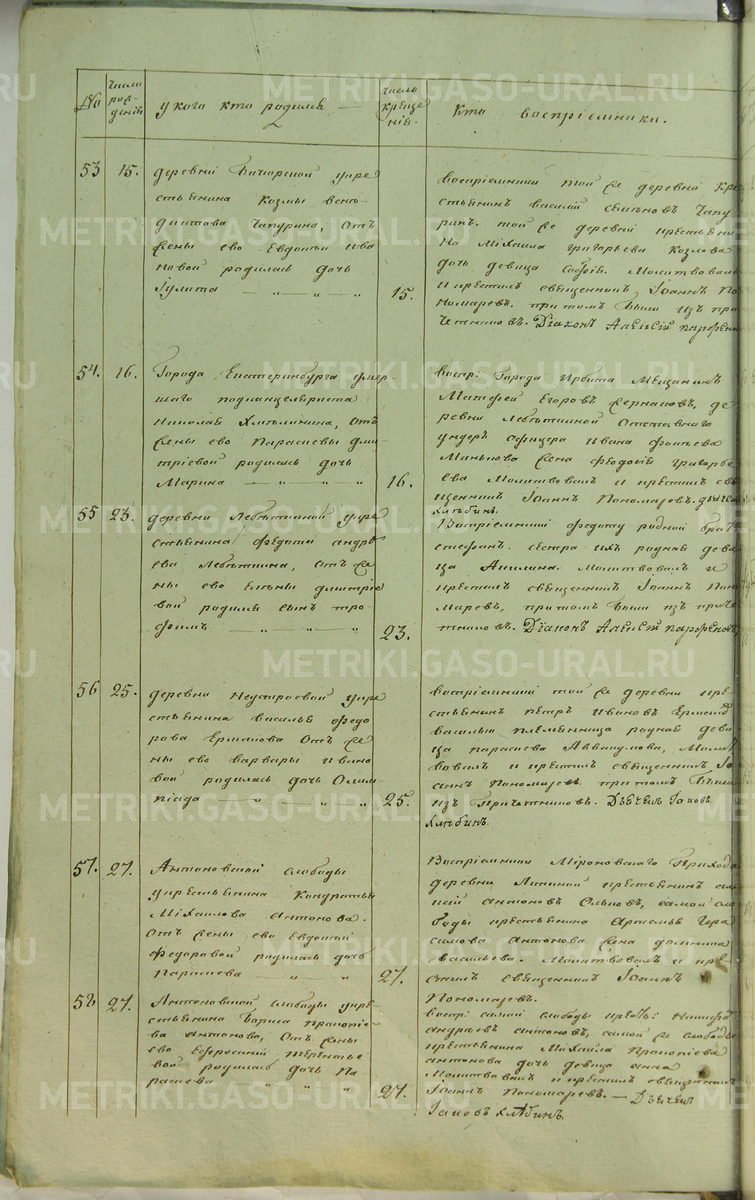 №
Число рождения
у кого кто родился
число крещения
Кто воспріемники.
53
15.
деревни
крестьянина Козмы
Чапурина, отъ
жены ево Евдокии Ива
новой родилась дочь
Іулита
15.
воспріемники той же деревни кре
стьянинъ василей семеновъ Чапу
ринъ. той же деревни крестьяни
на Міхаила григорьева козлова
дочь девица софія. Молитвовалъ
и крестилъ священникъ Іоаннъ По
номаревъ. при томъ были изъ при
четниковъ. Діаконъ Алексій
54.
16.
Города Екатеринбурга умер
шаго подканцеляриста
Николая Хмѣлинина, отъ
жены ево Парасковьи дми
тріевой родилась дочь
Марина
16.
воспр: Города Ирбита Мещанинъ
Матфей Егоровъ де
ревни Лебѣткиной Отставнаго
ундеръ офицера Ивана
жена феодосія григорье
ева Молитвовалъ и крестилъ свя
щенникъ Іоаннъ Пономаревъ. дьячекъ
хлѣбинъ.
55
23.
деревни Лебѣткиной кре
стьянина федота андре
ева Лебѣткина, отъ же
ны ево Елены дмитріе
вой родился сынъ тро
фимъ
23.
Воспріемники федоту родной братъ
стефанъ. сестра ихъ родная деви
ца Акилина. молитвовалъ и
крестилъ священникъ Іоаннъ Поно
маревъ, при томъ были изъ приче
тниковъ. Діаконъ Алексій
56
25.
деревни Неустроевой кре
стьянина василья федо
рова Ермакова отъ же
ны ево варвары ивано
вой родилась дочь Олим
піада
25.
воспріемники той же деревни кре
стьянинъ петръ Ивановъ
василья племянница родная деви
ца парасковья Аввакумова, Молит
вовалъ и крестилъ священникъ Іо
аннъ Пономаревъ. при томъ были
изъ Причетниковъ. Дьячекъ Іаковъ
Хлѣбинъ.
57.
27.
Антоновской слободы
крестьянина Кондратья
Міхаилова антонова.
отъ жены ево Евдокіи
федоровой родилась дочь
Парасковья
27.
Воспріемники Міроновскаго Прихода
деревни Липиной крестьянинъ
антоновъ самой сло
боды крестьянина Артемья Гера
симова антонова жена домника
васильева. Молитвовалъ и кре
стилъ священникъ Іоаннъ
Пономаревъ.
58
27.
Антоновской слободы кре
стьянина Бориса прокопіе
ва антонова, отъ жены
ево Ефросиніи терентье
вой родилась дочь Па
расковья
27.
воспр: самой слободы крест: Никифоръ
андреевъ антоновъ, самой же слободы
крестьянина Міхаила Прокопіева
антонова дочь девица анна
Молитвовалъ и крестилъ священникъ
Іоаннъ Пономаревъ. — Дьячекъ
Іаковъ Хлѣбинъ.
METRIKI.GASO-URAL.RU